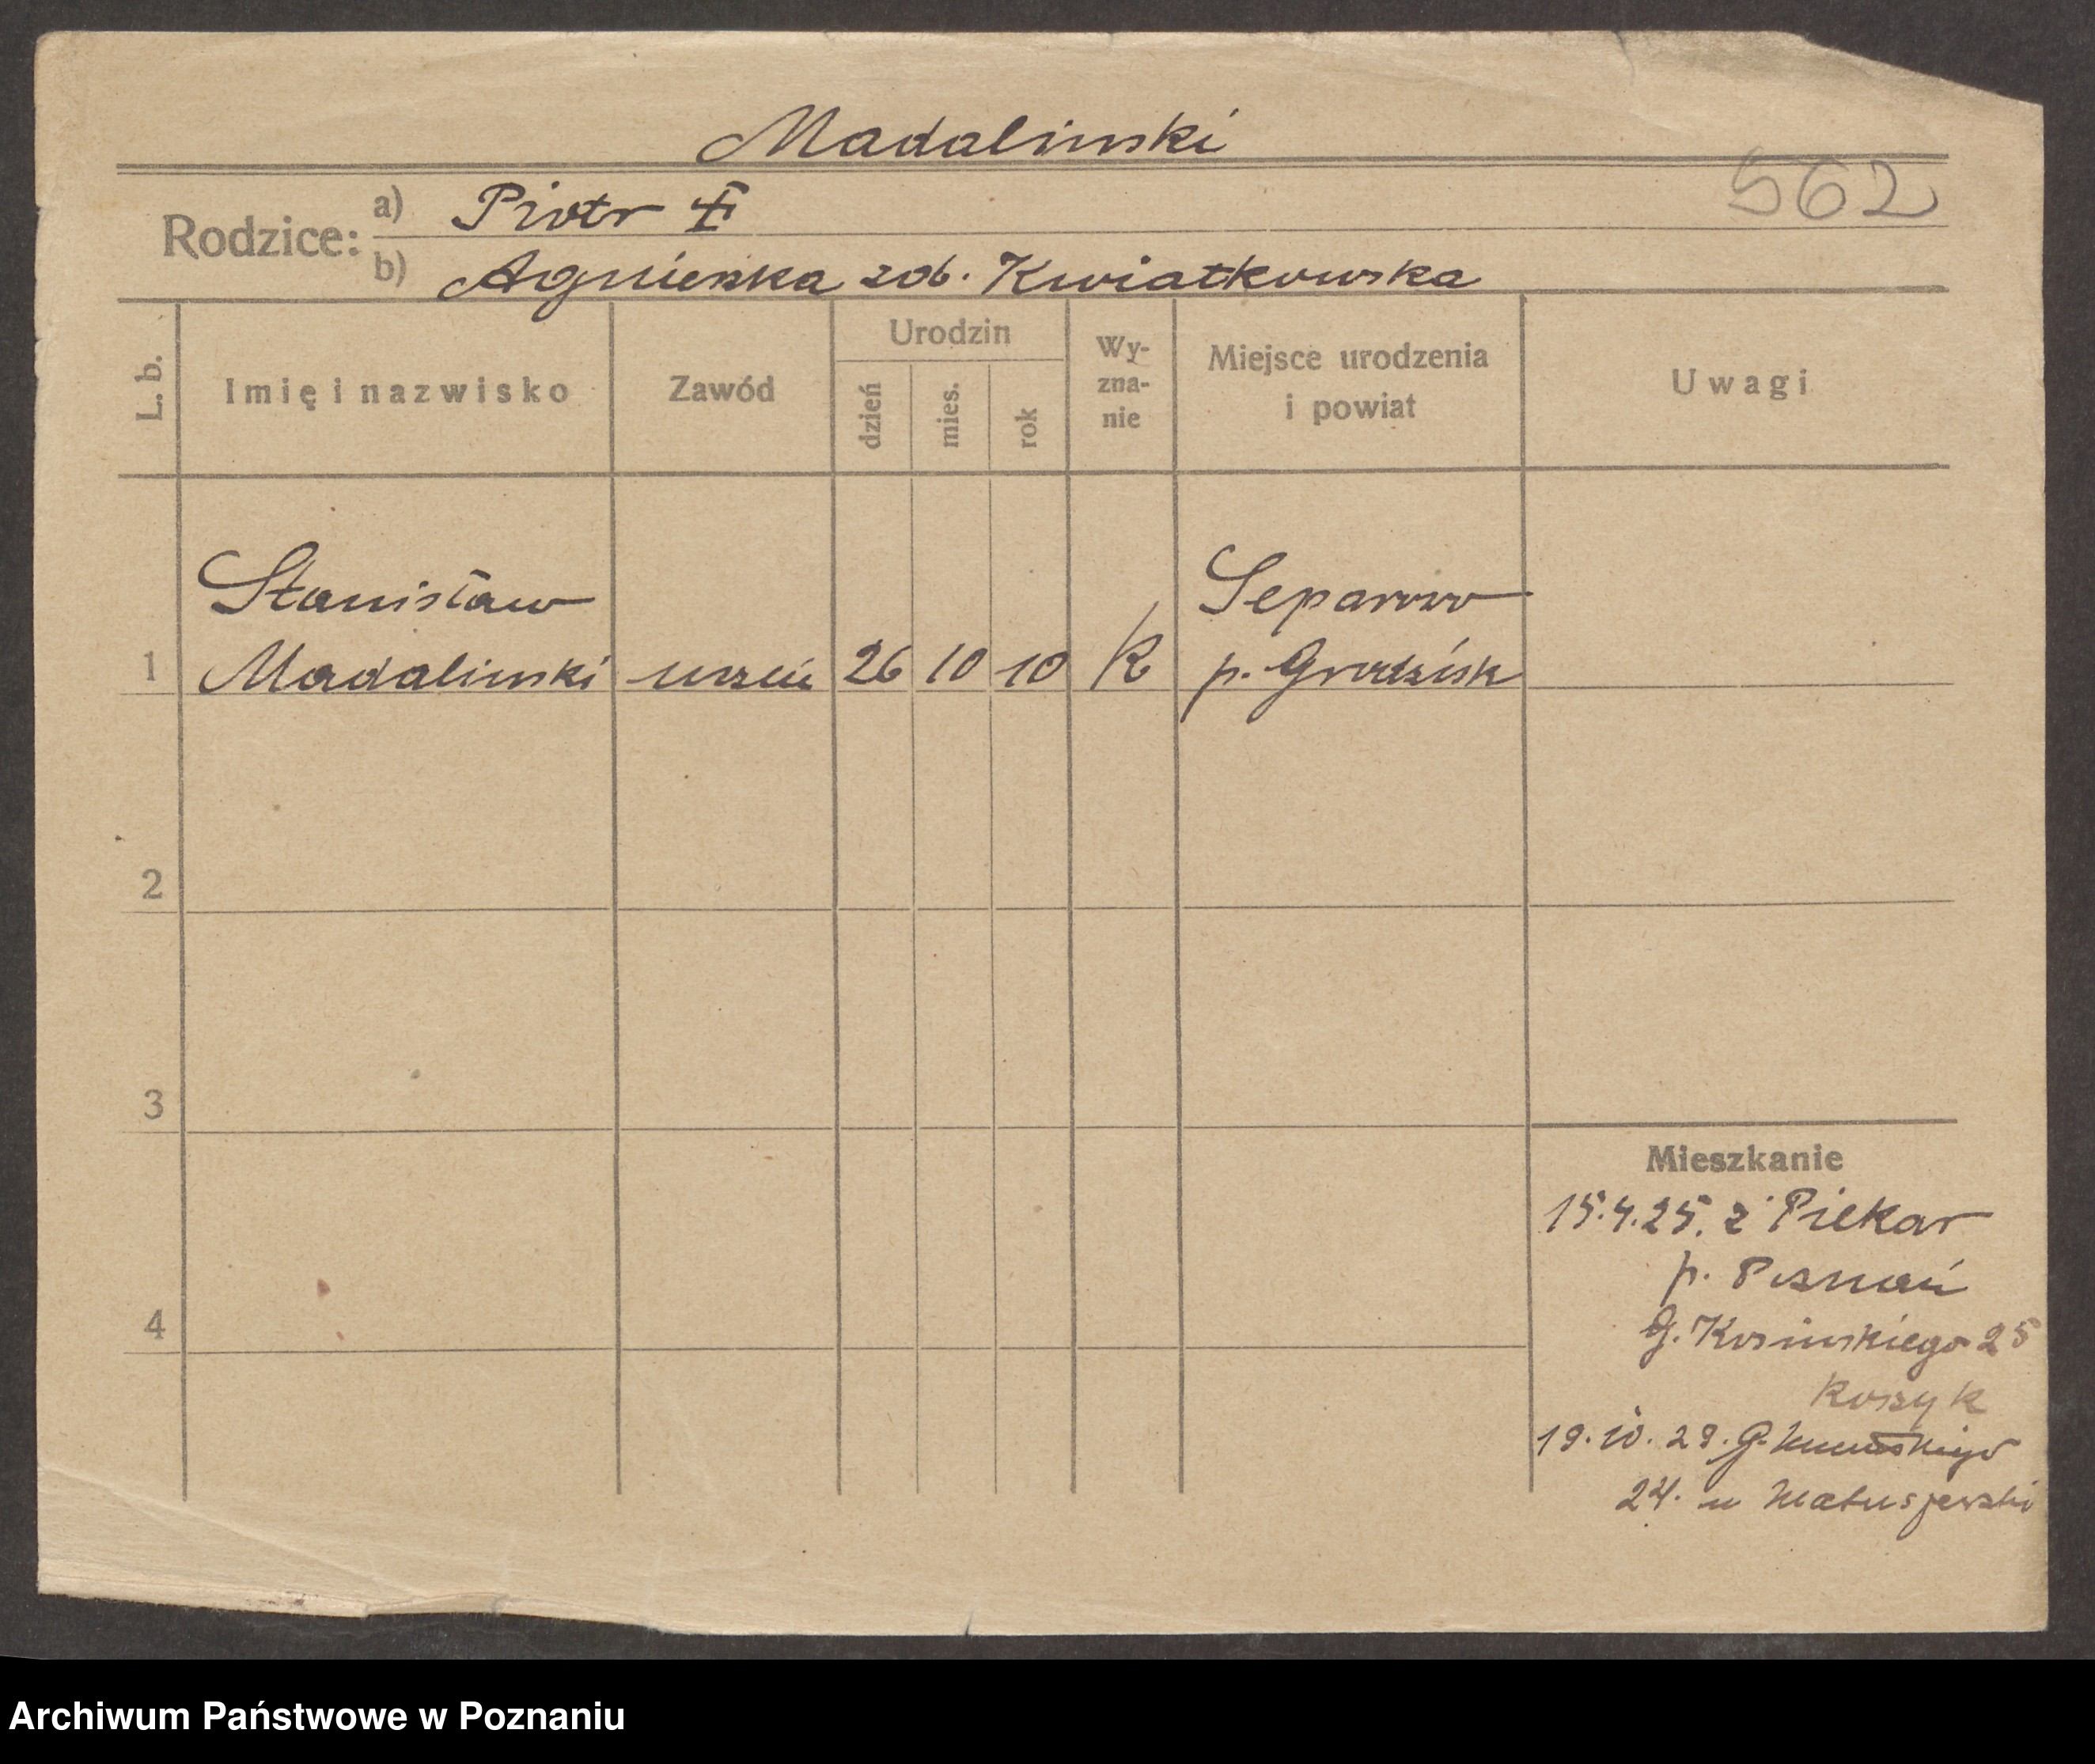 Madalinski
562
Rodzice: a) Piotr
b) Agnieszka zob. Kwiatkowska
L. b. Imię i nazwisko Zawód Urodzin dzień mies. rok Wy-zna-nie Miejsce urodzenia i powiat Uwagi
Stanisław Separowo
1 Madalinski uczeń 26 10 10 K p. Grodzisk
2
3
Mieszkanie
15.4.25. z Piekar
p. Poznań
4
G. Kosinskiego 25
19.10.29. G.
24. u
Archiwum Państwowe w Poznaniu